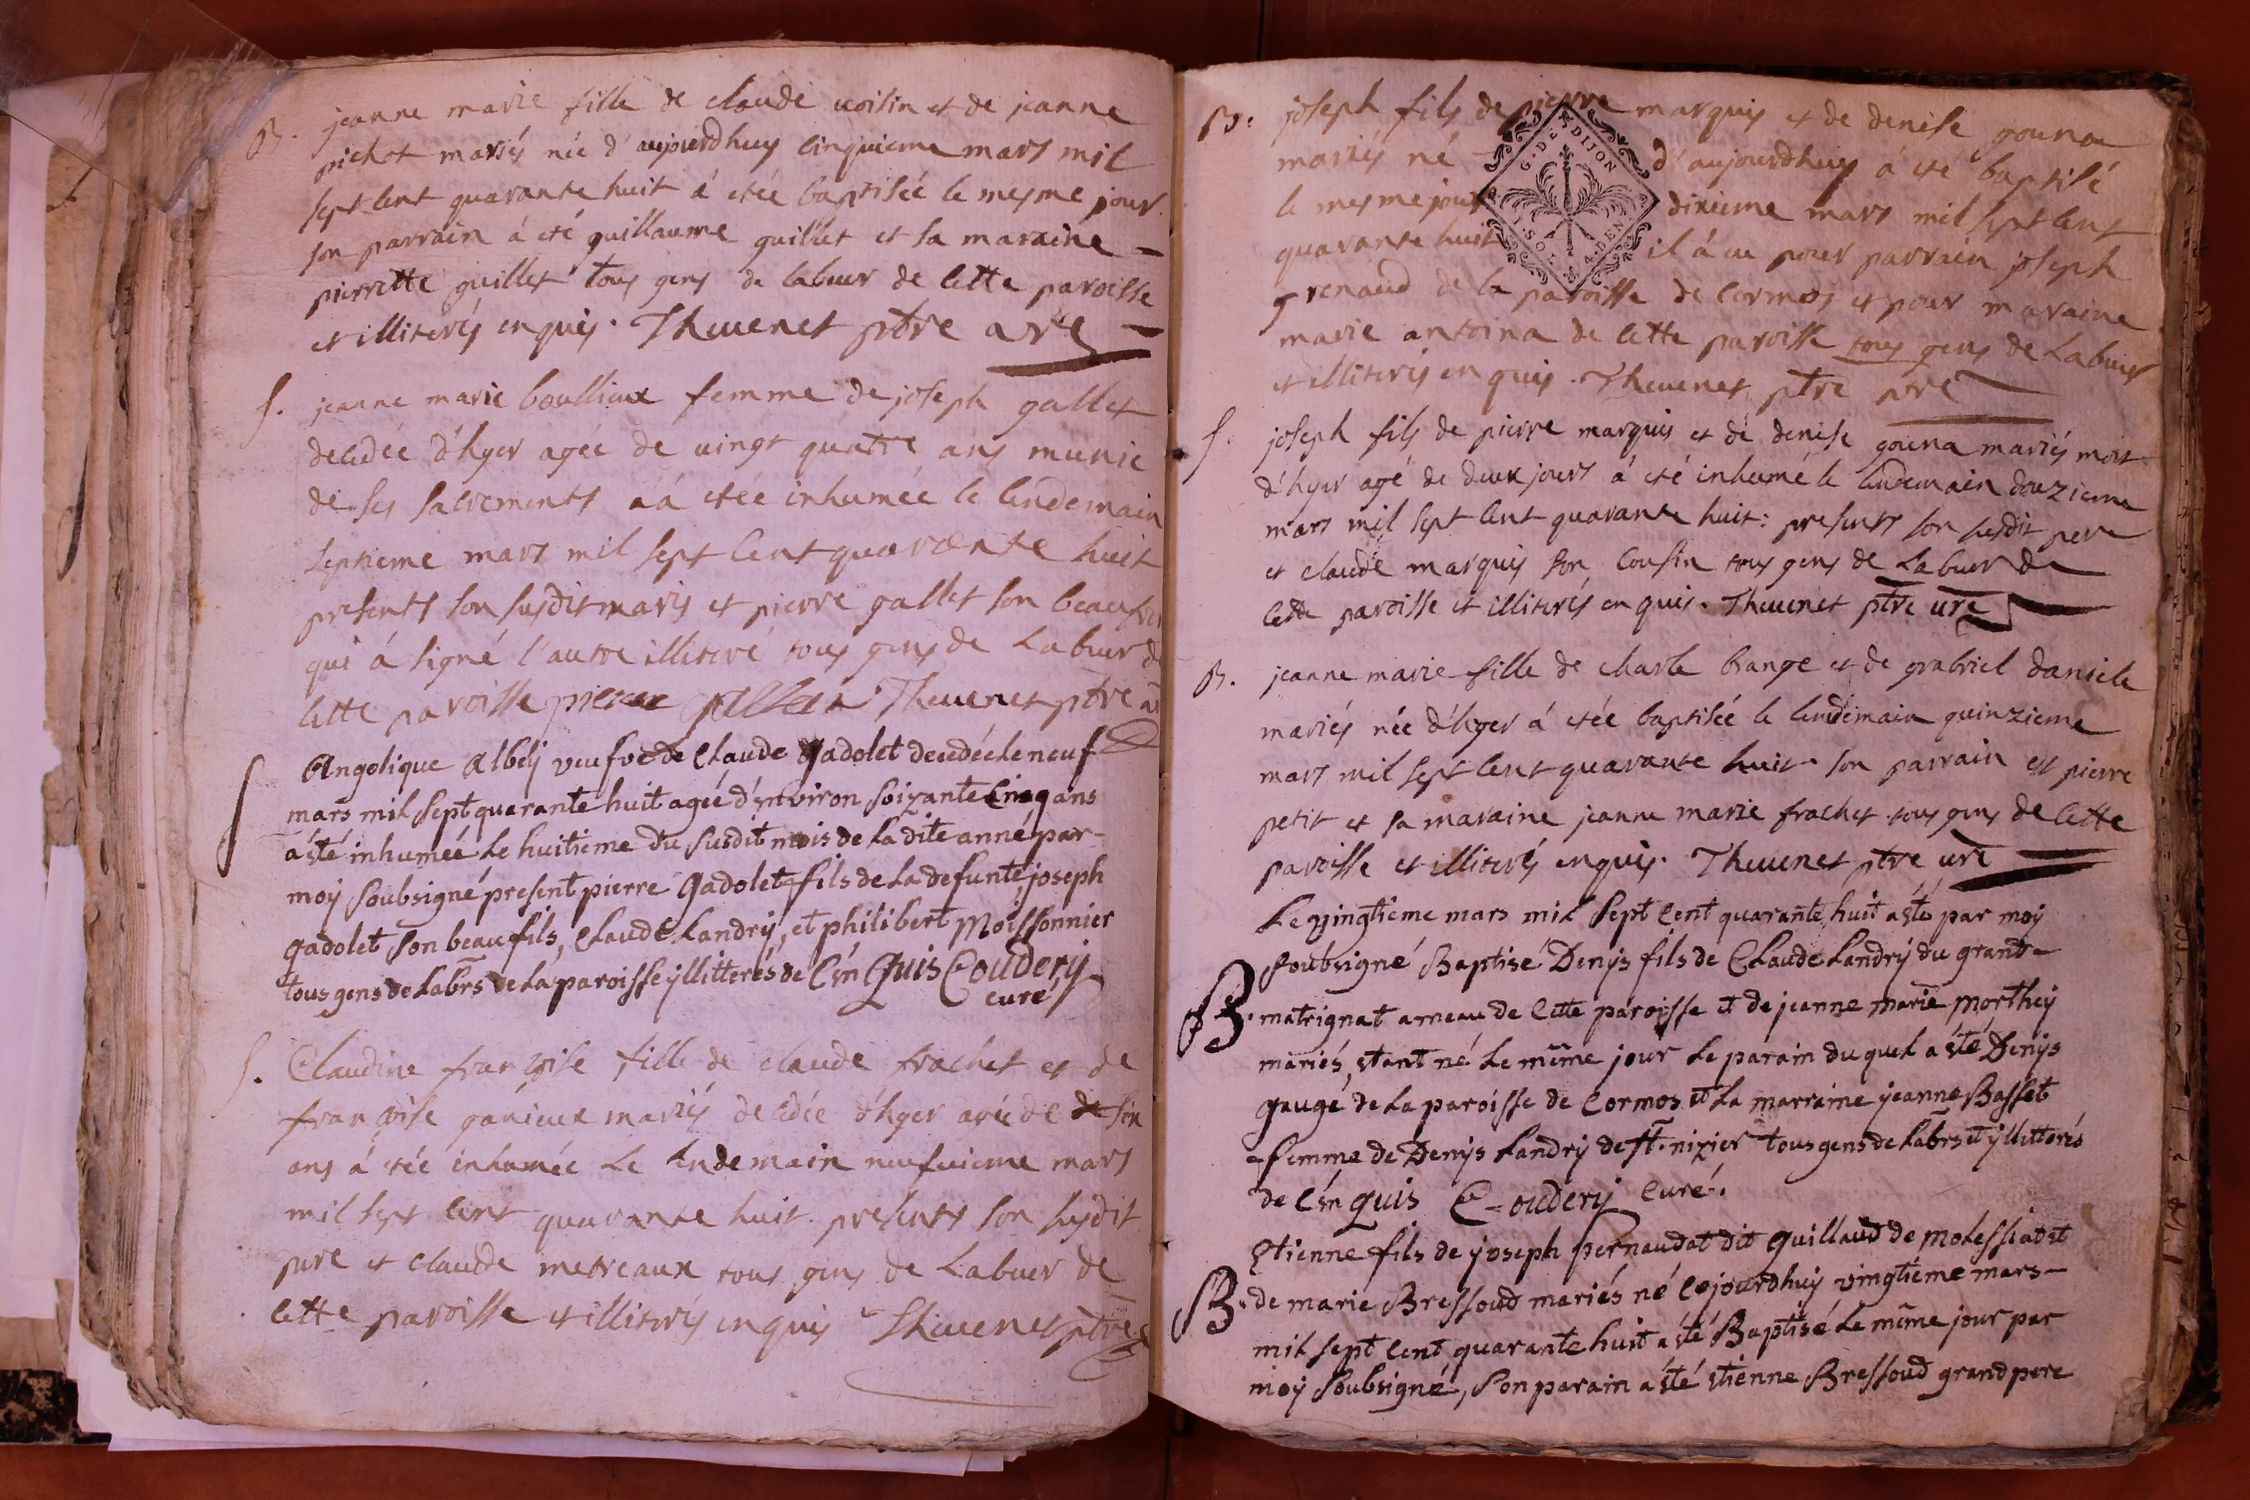 B. jeanne marie fille de claude voisin et de jeanne
pichot mariés née d'aujourdhuy cinquieme mars mil
sept cent quarante huit á etée baptisée le mesme jour
son parrain á eté guillaume guillet et sa maraine
pierrette guillet tous gens de labeur de cette paroisse
et illiterés enquis. Thevenet ptre
S. jeanne marie boullioux femme de joseph gallet
decedée d'hyer agée de vingt quatre ans munie
de ses sacrements a á etée inhumée le lendemain
septieme mars mil sept cent quarante huit
presents son susdit maris et pierre gallet son beau
qui á signé l'autre illiteré tous gens de Labeur
cette paroisse pierre Thevenet ptre
S Angelique Albely veufve de Claude Gadolet decedée le neuf
mars mil sept quarante huit agée d'environ soixante Cinq ans
a ésté inhumée Le huitieme du susdit mois de La dite anné par
moy soubsigné present pierre Gadolet fils de La defunte, joseph
gadolet son beau fils, Claude Landry, et philibert Moissonnier
tous gens de Labrs de La paroisse ÿllitterés de C'ên Quis Coudery
curé
S. Claudine françoise fille de claude frachet et de
françoise ganieux mariés decedée d'hyer agée de de six
ans á etée inhumée Le lendemain neufvieme mars
mil sept cent quarante huit presents son susdit
pere et claude metreaux tous gens de Labeur de
cette paroisse et illiterés enquis Thevenet ptre
B. joseph fils de pierre marquis et de denise gouna
mariés né d'aujourdhuy á eté baptisé
le mesme jour dixieme mars mil sept cent
quarante huit il á eu pour parrain joseph
G. DE DIJON
SOL DEN
grenaud de la paroisse de cormos et pour maraine
marie antoina de cette paroisse tous gens de Labeur
et illiterés enquis. Thevenet ptre
S. joseph fils de pierre marquis et de denise gouna mariés mort
d'hyer agé de deux jours á eté inhumé le lendemain douzieme
mars mil sept cent quarante huit: presents son susdit pere
et claude marquis son Cousin tous gens de Labeur de
cette paroisse et illiterés enquis. Thevenet ptre
B. jeanne marie fille de charle brange et de grabriel daniele
mariés née d'hyer á etée baptisée le lendemain quinzieme
mars mil sept cent quarante huit son parrain est pierre
petit et sa maraine jeanne marie frachet tous gens de cette
paroisse et illiterés enquis. Thevenet ptre
Le vingtieme mars mil sept Cent quarante huit a ésté par moÿ
soubsigné Baptisé Denÿs fils de Claude Landrÿ du grand
B. matrignat ameau de Cette paroisse et de jeanne marie Morthey
mariés, etant né Le même jour Le parain du quel a ésté Denÿs
gauge de La paroisse de Cormos et La marraine jeanne Basset
femme de Denÿs Landrÿ de st. nizier tous gens de Labrs et ÿllitterés
de C'ên quis Coudery Curé.
Etienne fils de joseph pernaudat dit Guillaud de Molessiat et
B. de marie Bressoud mariés né Cejourdhuÿ vingtieme mars
mil sept Cent quarante huit a ésté Baptisé Le même jour par
moÿ soubsigné, son parain a ésté Etienne Bressoud grand pere